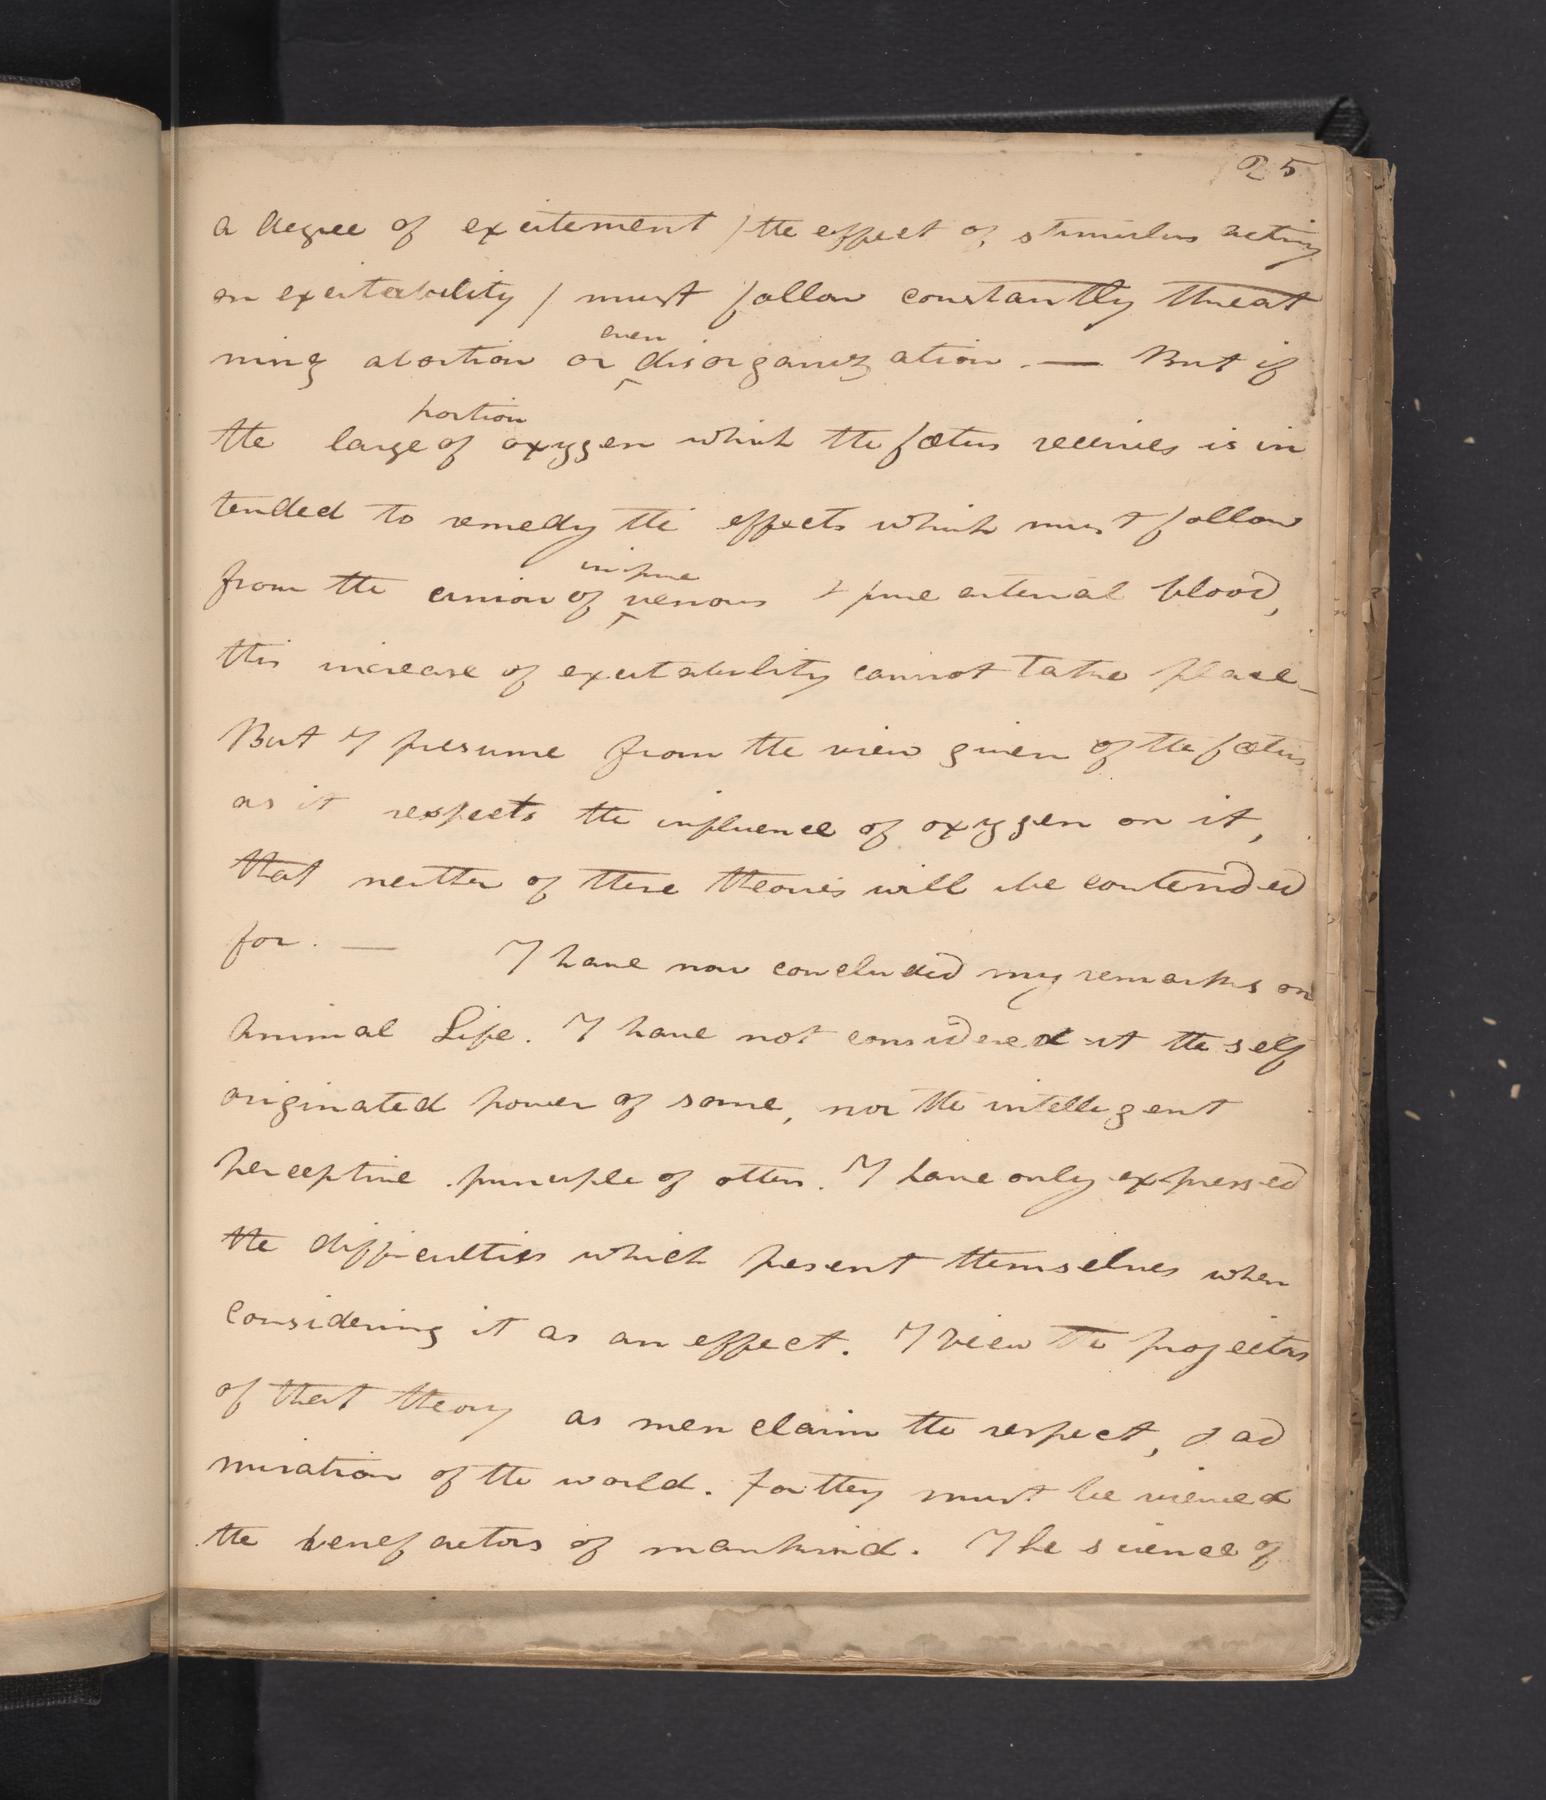 25
a degree of excitement / the effect of stimulus acting
on excitability / must follow constantly threat
even
ning abortion or ‸ disorganization . — But if
portion
the large of oxygen which the fœtus receives is in
tended to remedy the effects which must follow
impure
from the union of ‸ venous & pure arterial blood,
this increase of excitability cannot take place —
But I presume from the view given of the fœtus
as it respects the influence of oxygen on it,
that neither of these theories will be contended
for. — I have now concluded my remarks on
Animal Life. I have not considered it the self
originated power of some, nor the intelligent
perceptive principle of others. I have only expressed
the difficulties which present themselves when
considering it as an effect. I view the projectors
of that theory as men claim the respect, & ad
miration of the world. For they must be viewed
the benefactors of mankind. The science of